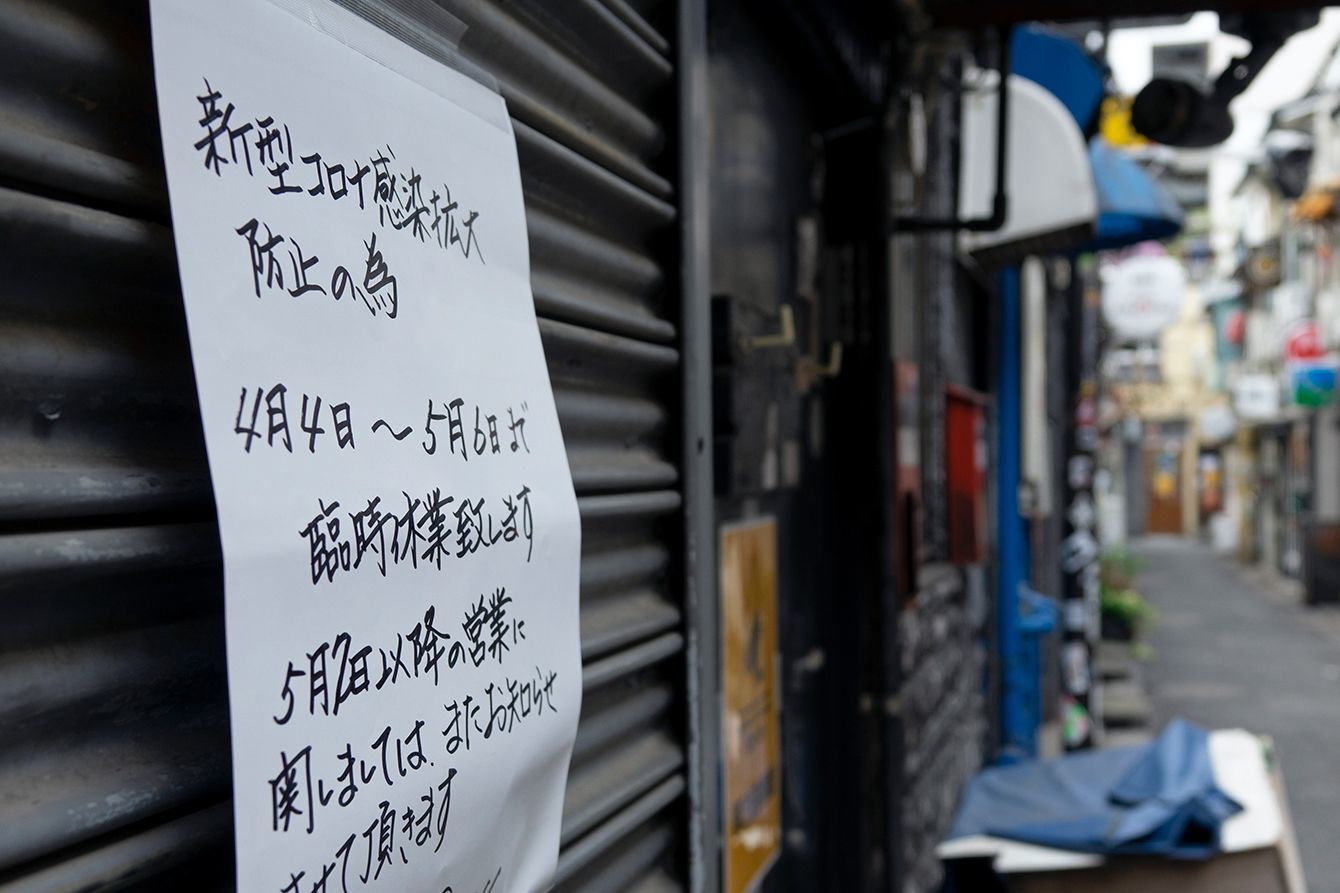 新型コロナ感染拡大
防止の為
4月4日～5月6日まで
臨時休業致します
5月2日以降の営業に
関しましては、またお知らせ
させて頂きます